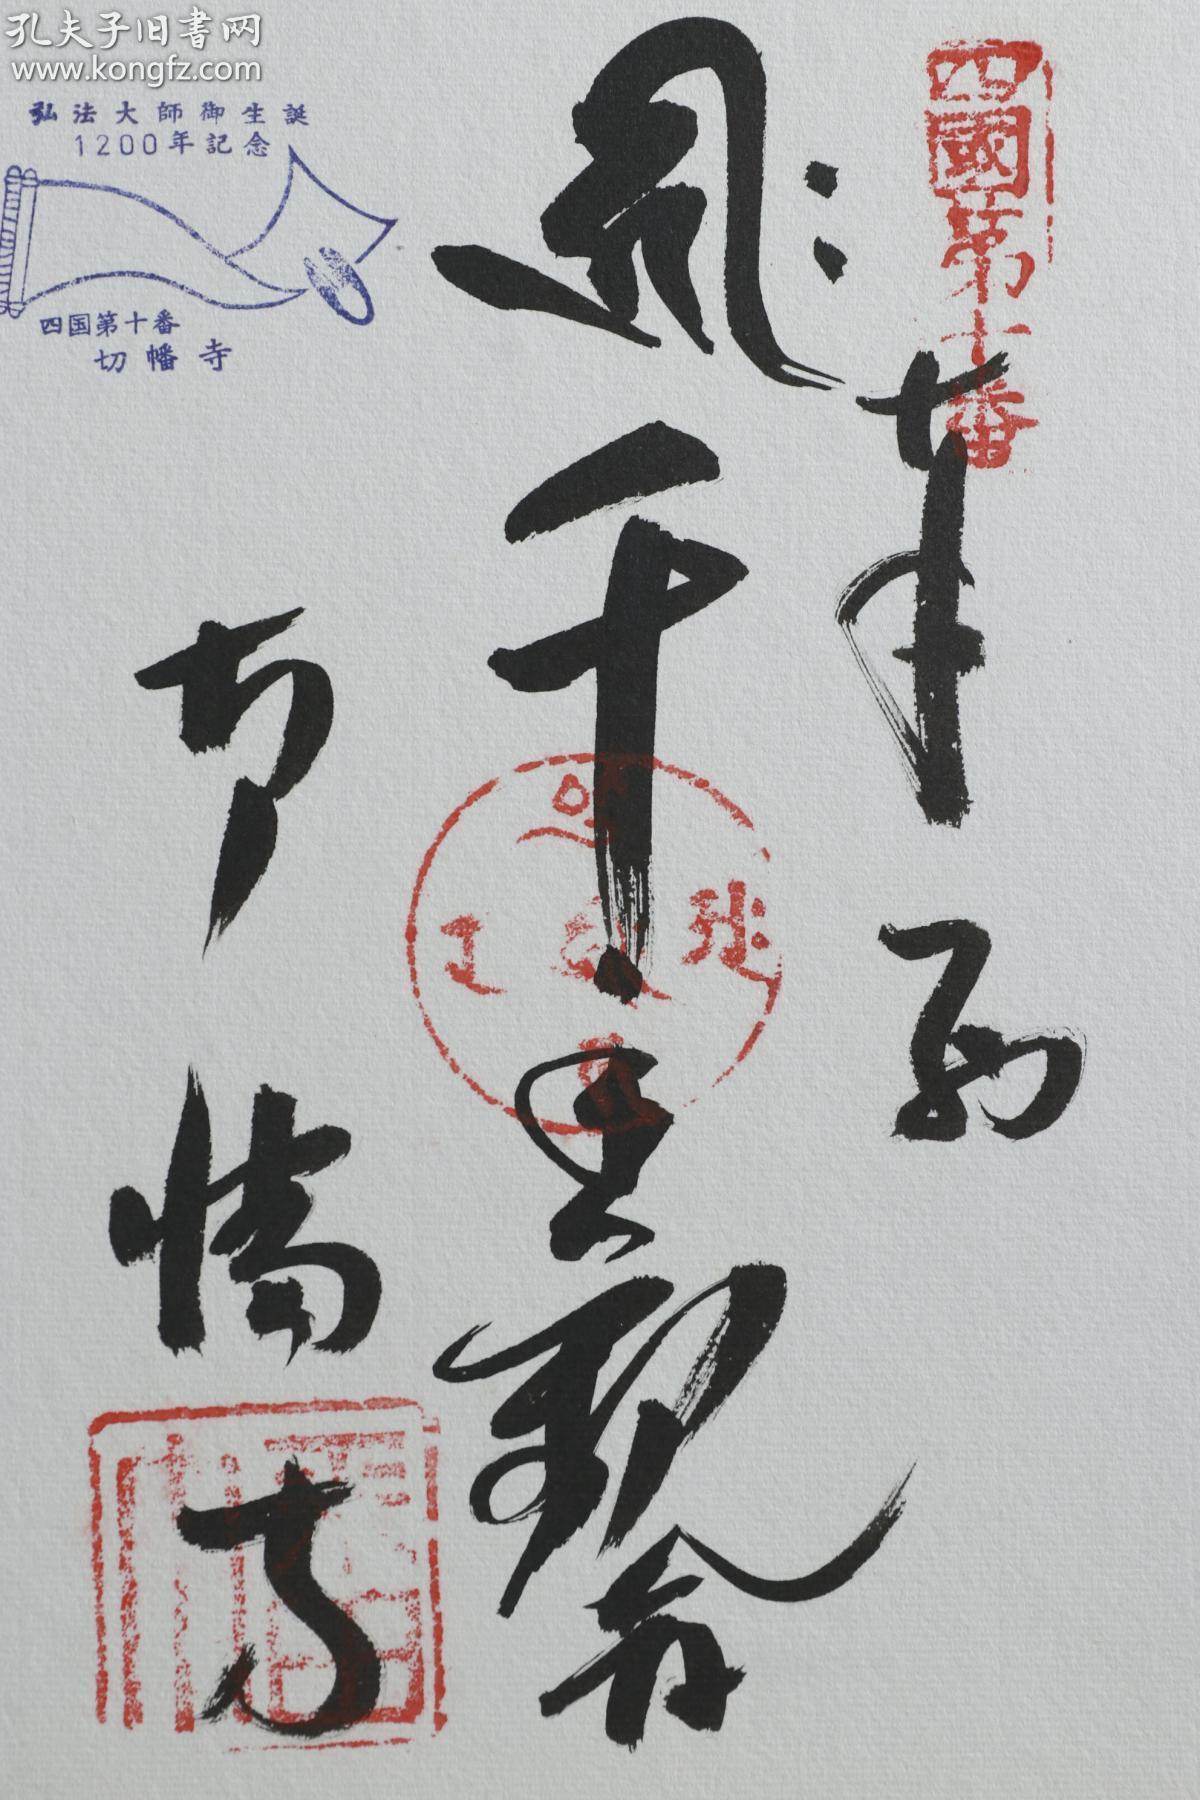 孔夫子旧書网
www.kongfz.com
弘法大師御生誕
1200年記念
四国第十番
切幡寺
四國第十番
奉納
千手観音
切幡寺